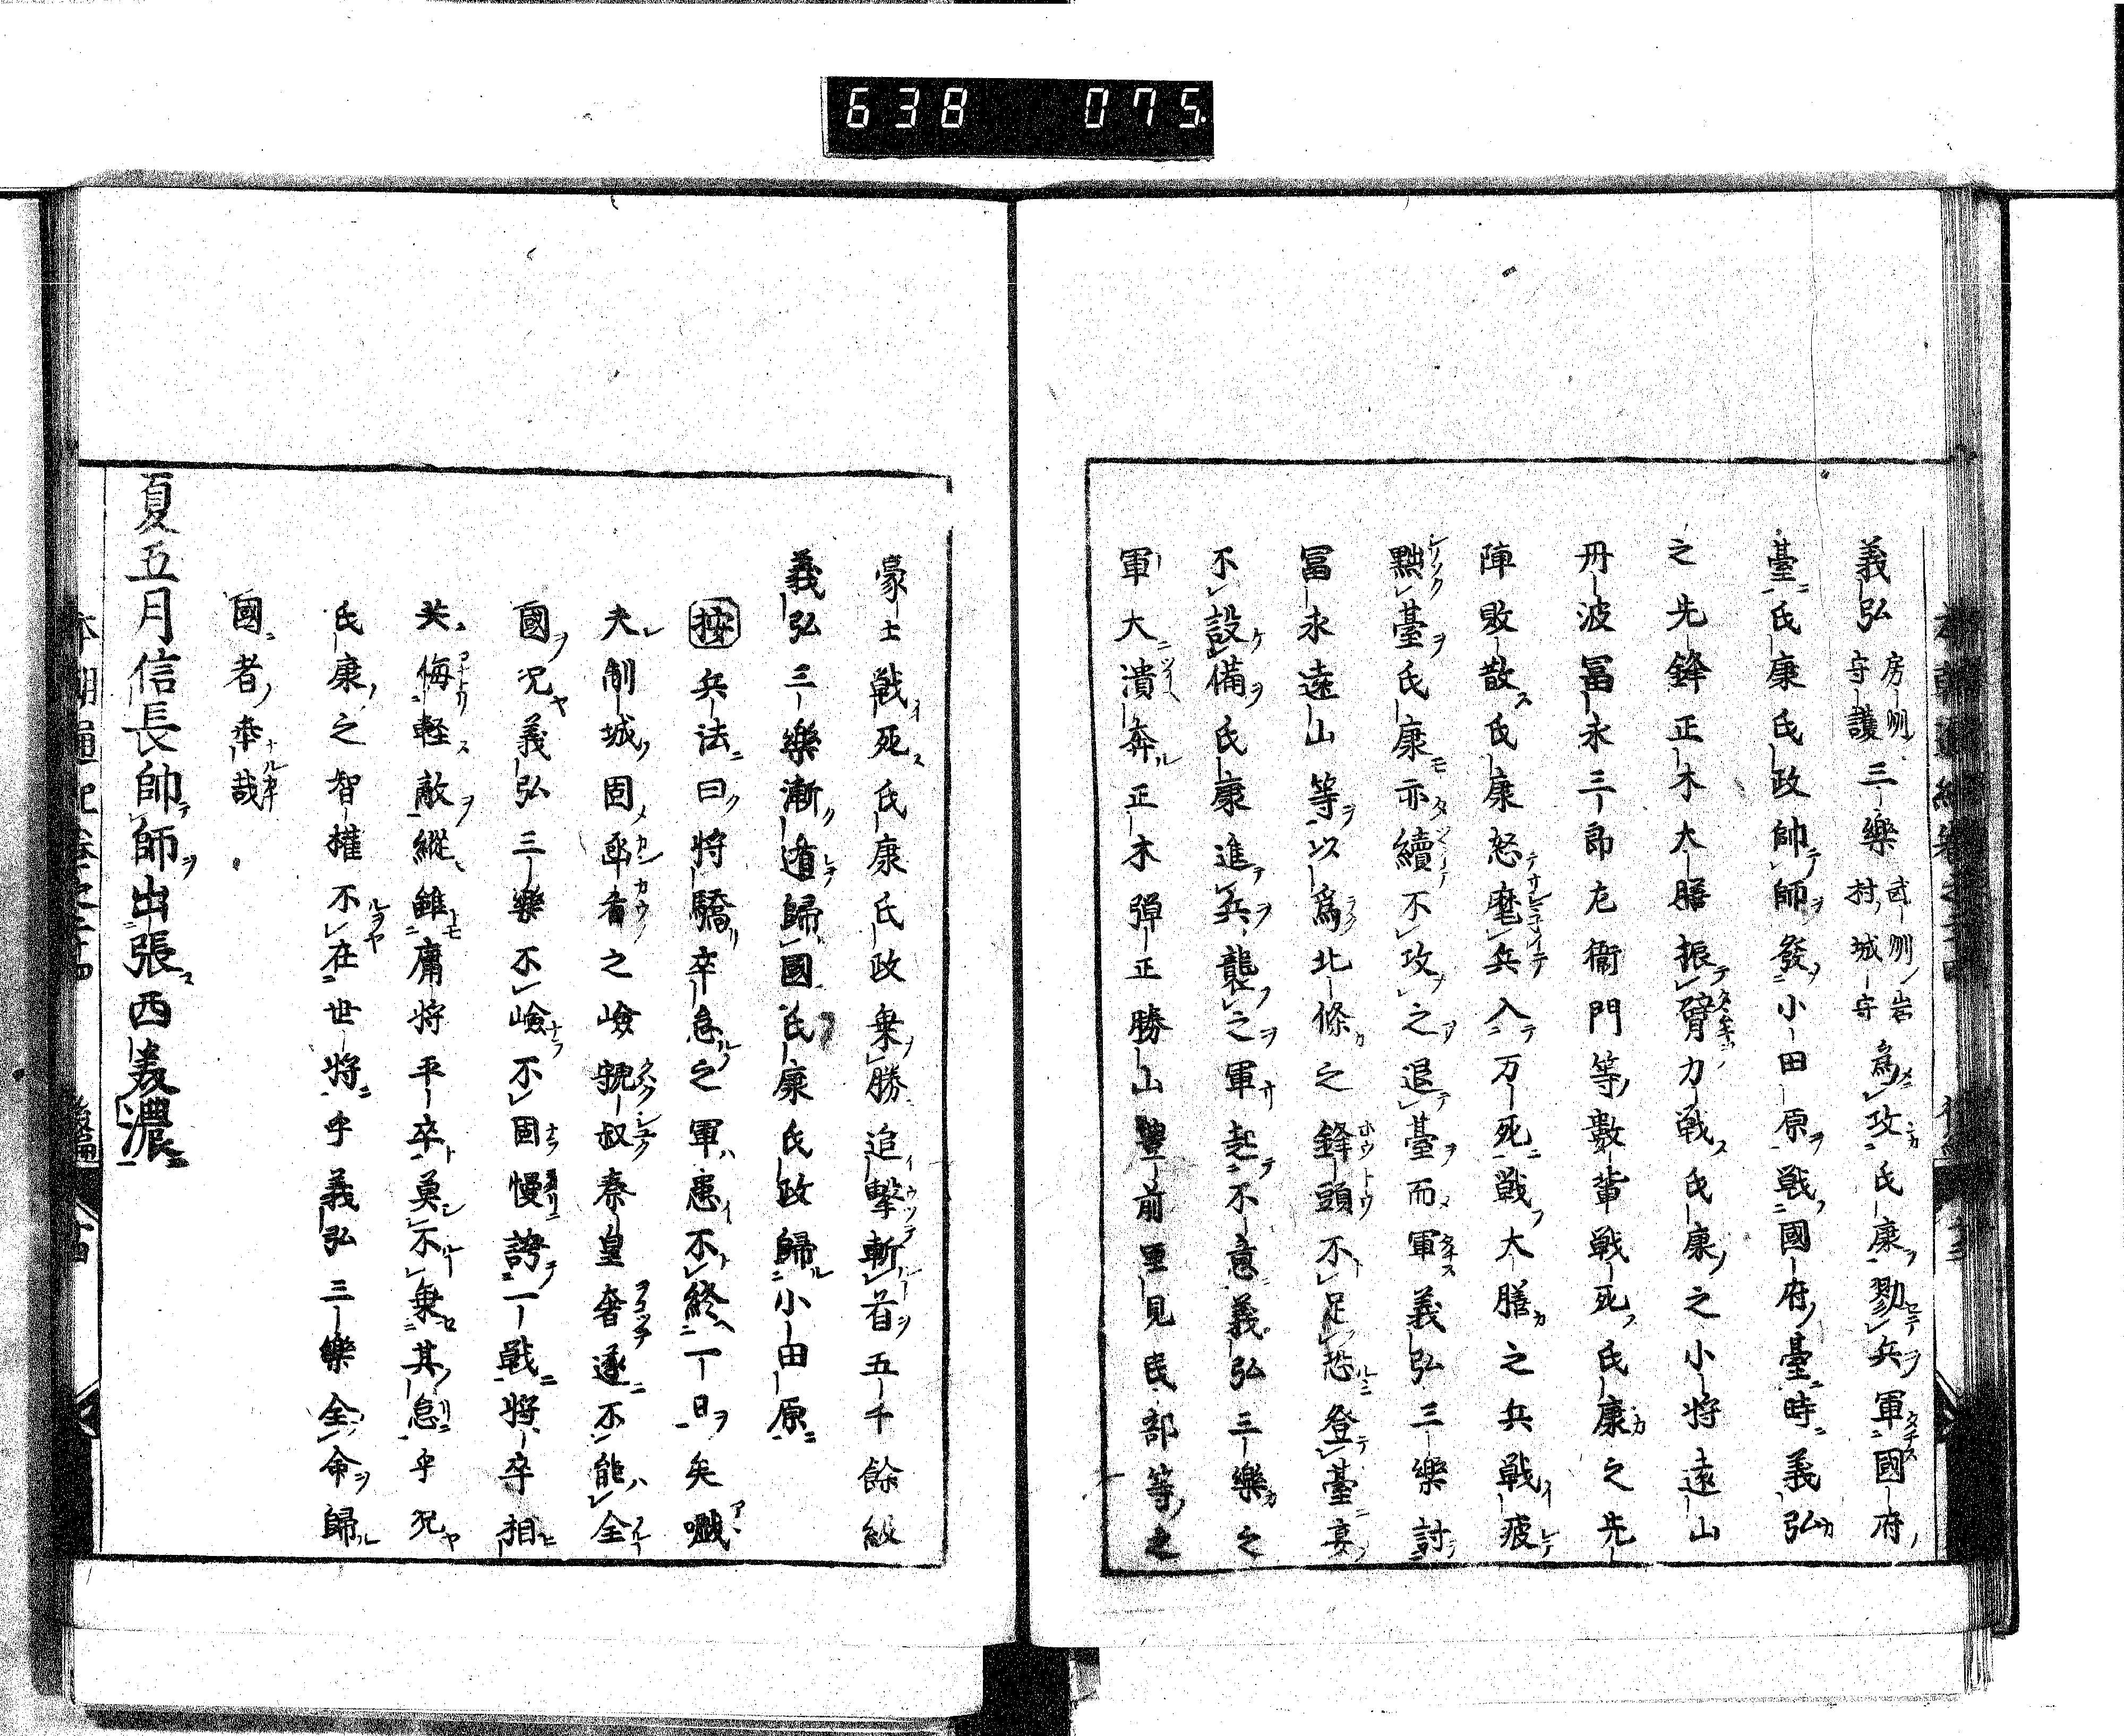 638 075
義弘房州守護三樂武州岩村城守為攻氏康勠兵軍國府
臺氏康氏政帥師發小田原戰國府臺時義弘
之先鋒正木大膳振臂力戰氏康之小將遠山
丹波冨永三郎左衞門等數輩戰死氏康之先
陣敗散氏康怒麾兵入万死戰大膳之兵戰疲
黜臺氏康亦續不攻之退臺而軍義弘三樂討
冨永遠山等以為北條之鋒頭不足恐登臺宴
不設備氏康進兵襲之軍起不意義弘三樂之
軍大潰奔正木彈正勝山豐前里見民部等之
豪士戰死氏康氏政乗勝追擊斬首五千餘級
義弘三樂漸遁歸國氏康氏政歸小田原
按兵法曰將驕卒怠之軍患不終一日矣嘅
夫制城固函肴之嶮虢叔秦皇奢遂不能全
國况義弘三樂不嶮不固慢誇一戰將卒相
共侮軽敵縱雖庸将平卒莫不乗其怠乎况
氏康之智權不在世將乎義弘三樂全命歸
國者幸哉
夏五月信長帥師出張西美濃
本朝通紀卷之二十四 後編